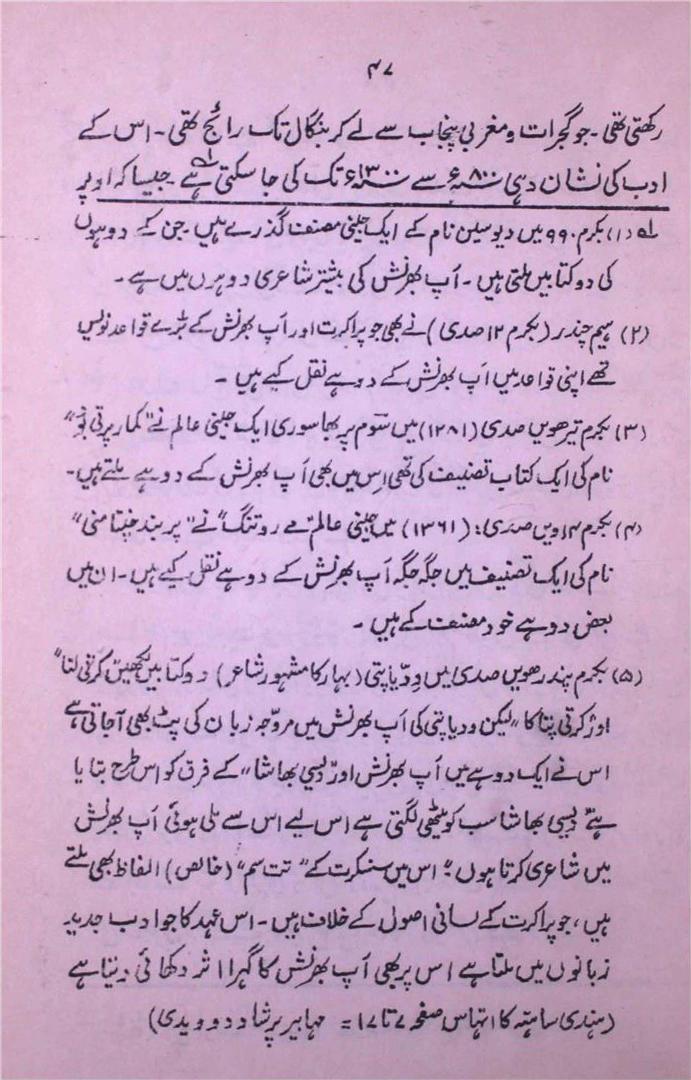 ۴۷
رکھتی تھی۔ جو گجرات و مغربی پنجاب سے لے کر بنگال تک رائج تھی۔ اس کے
ادب کی نشان دہی ۸۰۰ء سے ۱۳۰۰ء تک کی جا سکتی ہے۔ جیسا کہ اوپر
لہ (۱) بکرم ۹۹۰ میں دیوسین نام کے ایک جینی مصنف گذرے ہیں۔ جن کے دوہوں
کی دو کتابیں ملتی ہیں۔ اَپ بھرنش کی بیشتر شاعری دوہوں میں ہے۔
(۲) ہیم چندر (بکرم ۱۲ صدی) نے بھی جو پراکرت اور اَپ بھرنش کے بڑے قواعد نویس
تھے اپنی قواعد میں اَپ بھرنش کے دوہے نقل کیے ہیں۔
(۳) بکرم تیرھویں صدی (۱۲۸۱) میں سَوم پربھاسوری ایک جینی عالم نے "کمارپرتی بَو"
نام کی ایک کتاب تصنیف کی تھی اِس میں بھی اَپ بھرنش کے دوہے ملتے ہیں۔
(۴) بکرم ۱۴ ویں صدی: (۱۳۶۱) میں جینی عالم "مے روتنگ" نے "پربند چنتامنی"
نام کی ایک تصنیف میں جگہ جگہ اَپ بھرنش کے دوہے نقل کیے ہیں۔ ان میں
بعض دوہے خود مصنف کے ہیں۔
(۵) بکرم پندرھویں صدی میں وِدّیاپتی (بہار کا مشہور شاعر) دو کتابیں لکھیں "کرتی لتا"
اور "کرتی پتاکا" لیکن ودیاپتی کی اَپ بھرنش میں مروّجہ زبان کی پٹ بھی آجاتی ہے
اس نے ایک دوہے میں اَپ بھرنش اور "دیسی بھاشا" کے فرق کو اس طرح بتایا
ہے "دیسی بھاشا سب کو میٹھی لگتی ہے اس لیے اس سے ملی ہوئی اَپ بھرنش
میں شاعری کرتا ہوں"؛ اس میں سنسکرت کے "تت سم" (خالص) الفاظ بھی ملتے
ہیں، جو پراکرت کے لسانی اصول کے خلاف ہیں۔ اس عہد کا جو ادب جدید
زبانوں میں ملتا ہے اس پر بھی اَپ بھرنش کا گہرا اثر دکھائی دیتا ہے
(ہندی ساہتہ کا اتہاس صفحہ ۷ تا ۱۷ = مہابیر پرشاد دوویدی)